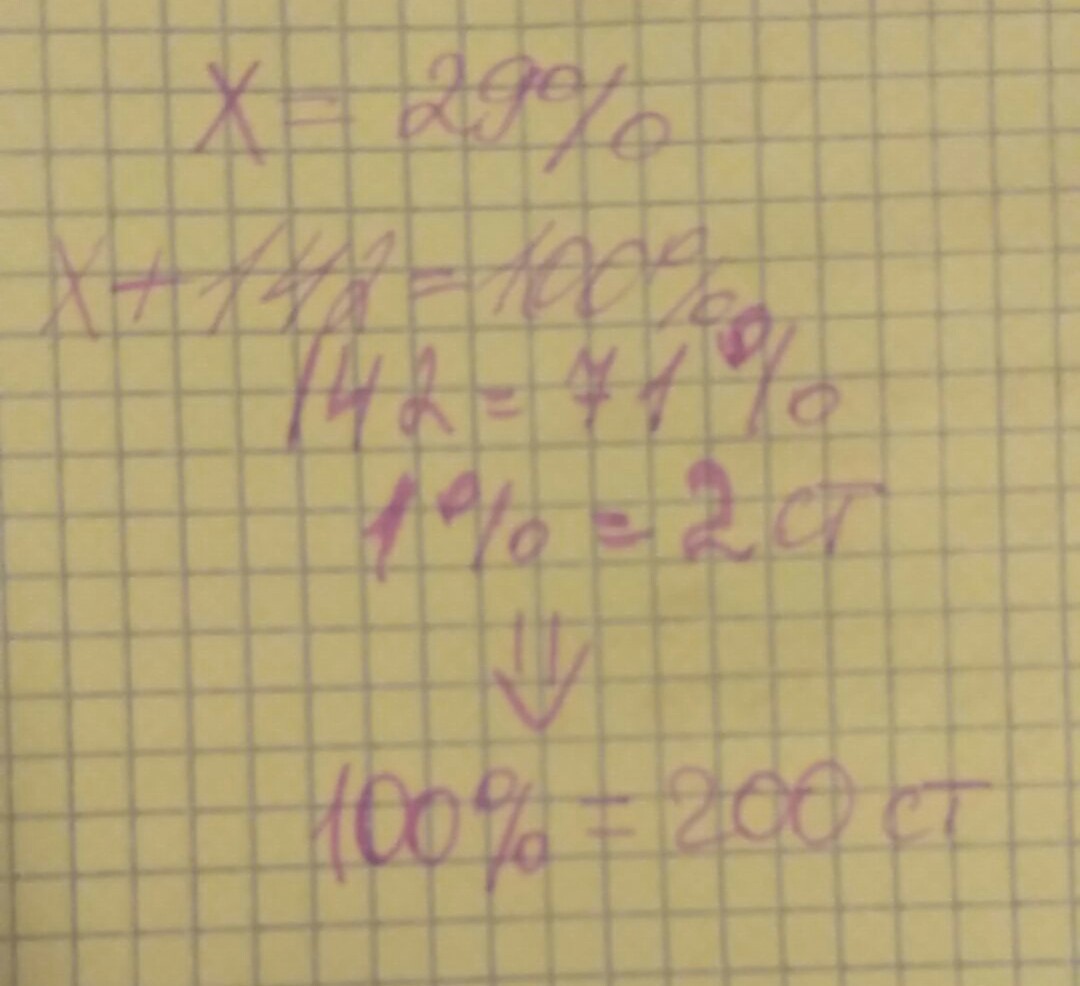 X = 29%
X + 142 = 100%
142 = 71%
1% = 2 ст
⇓
100% = 200 ст